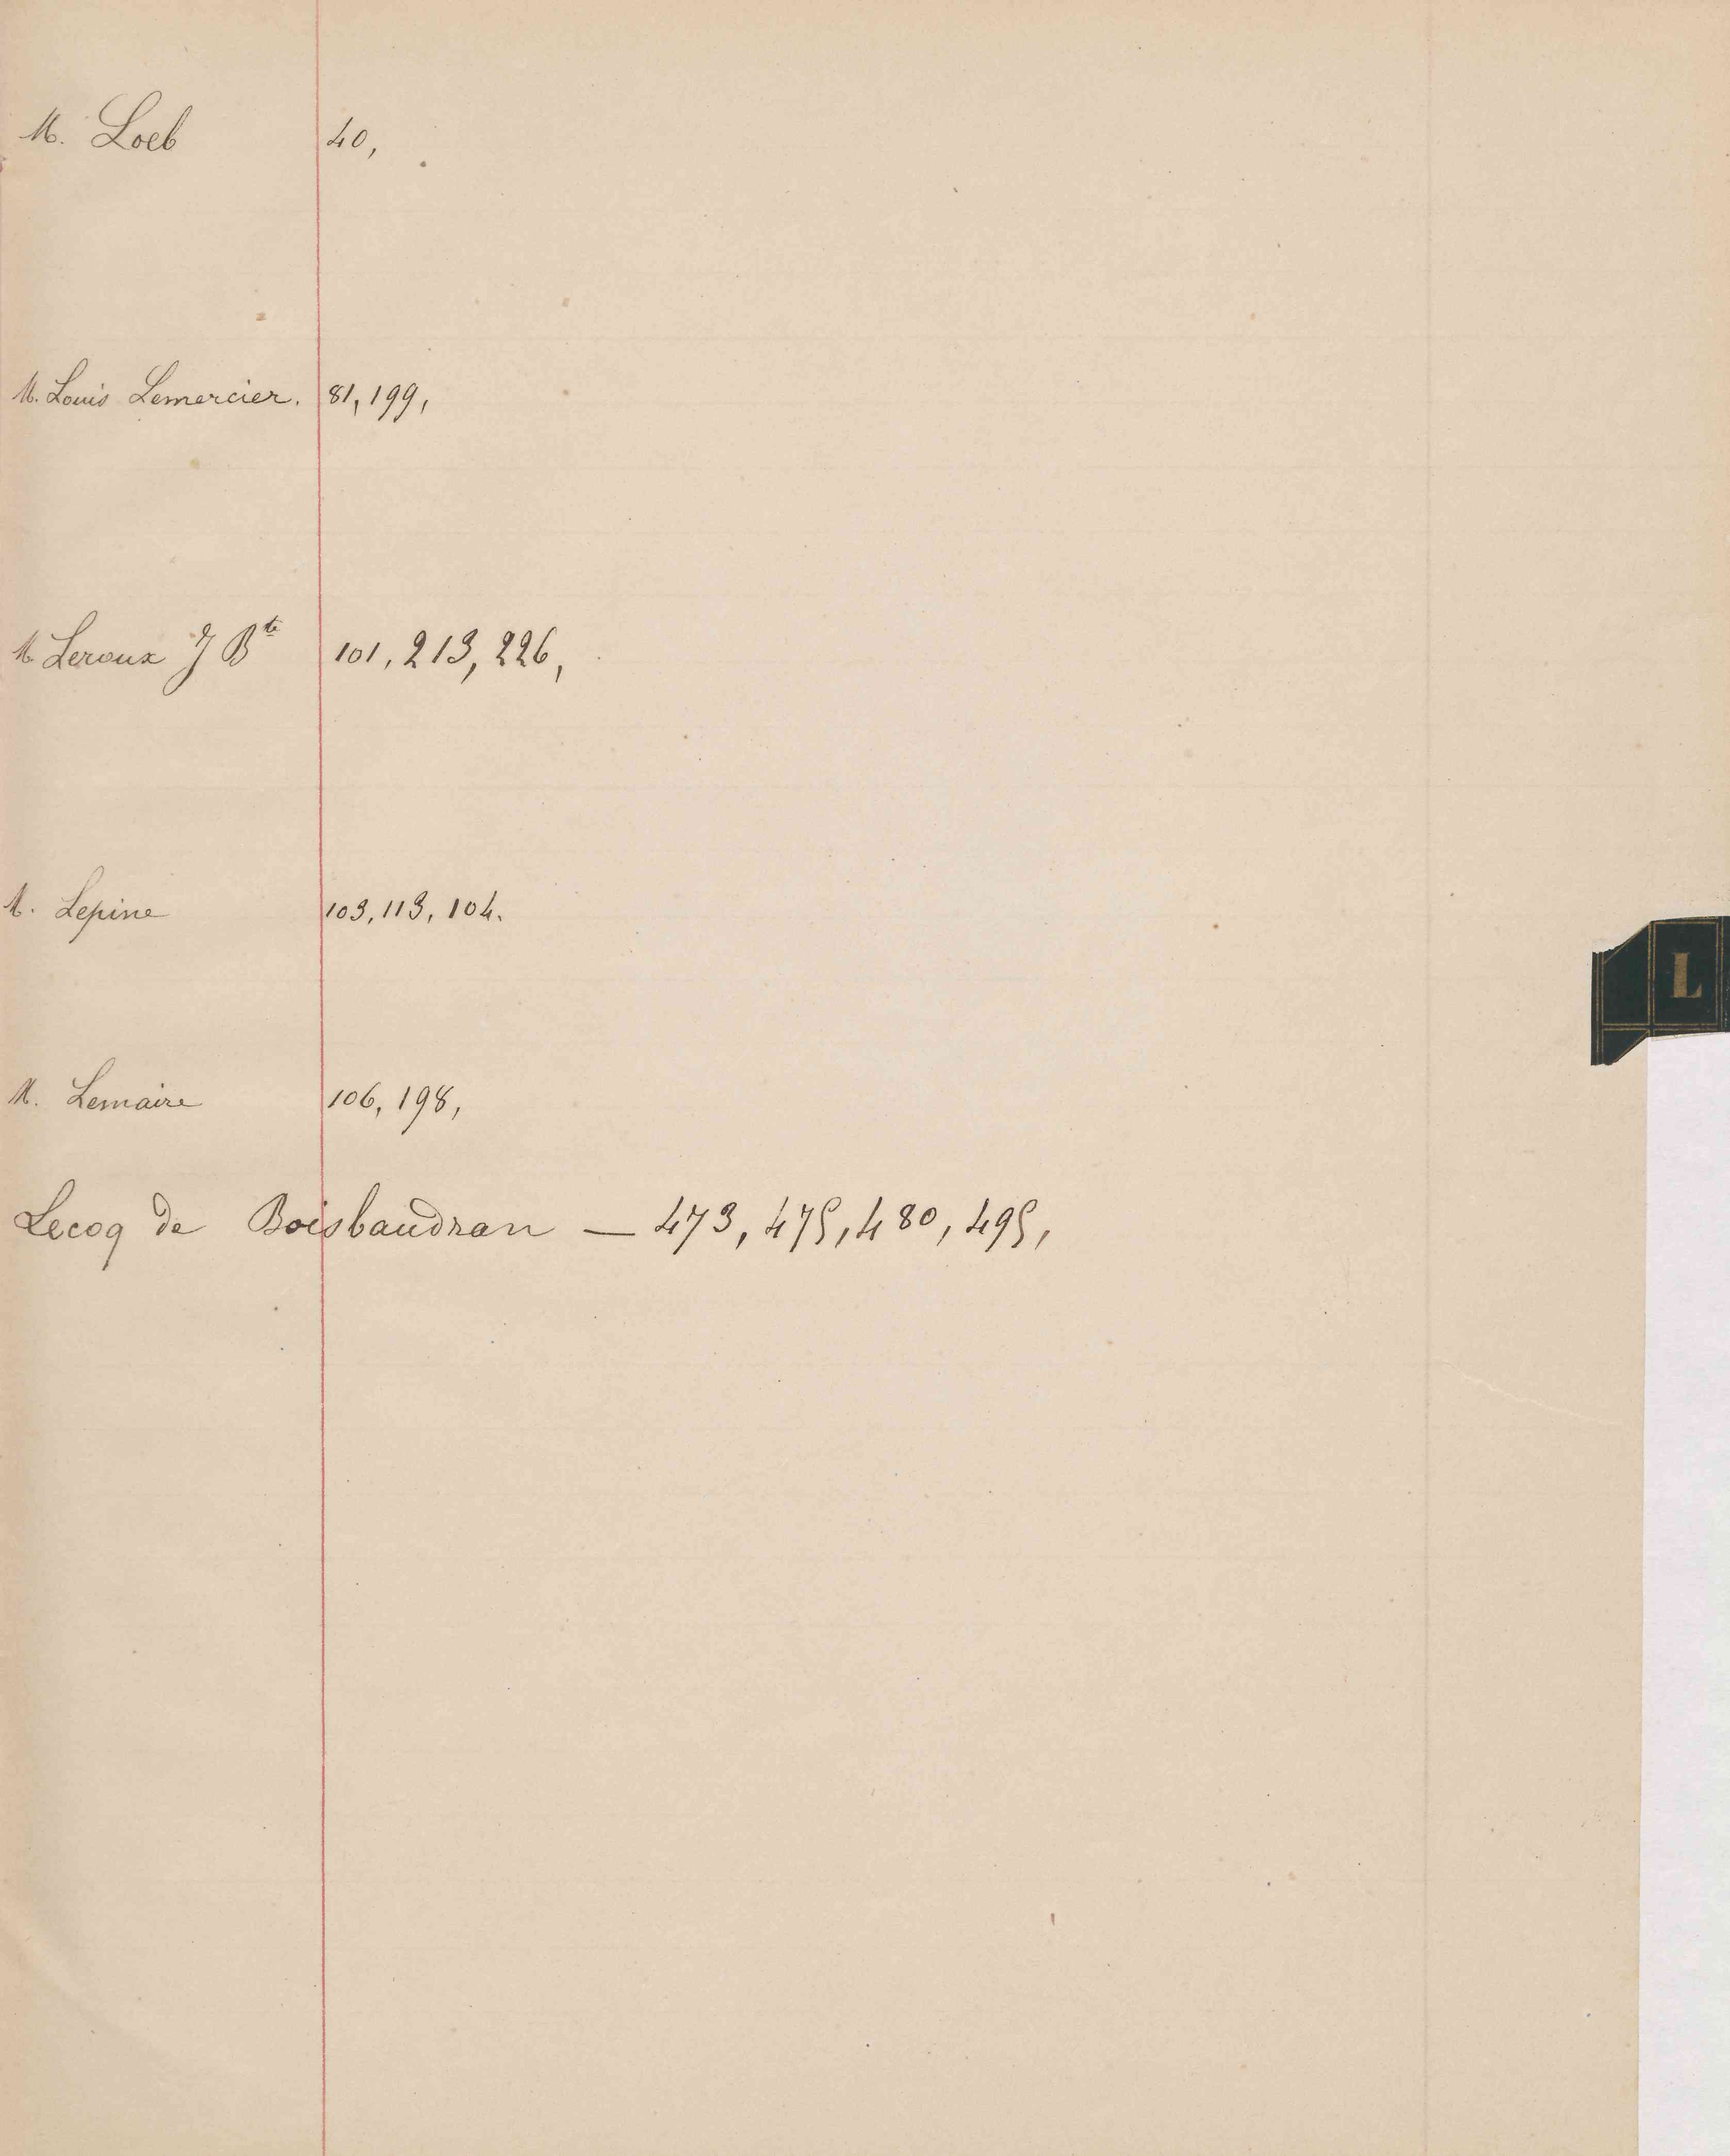 M. Loeb 40,
M. Louis Lemercier. 81, 199,
M Leroux J Bte 101, 213, 226,
M. Lepine 103, 113, 104.
L
M. Lemaire 106, 198,
Lecoq de Boisbaudran — 473, 475, 480, 495,